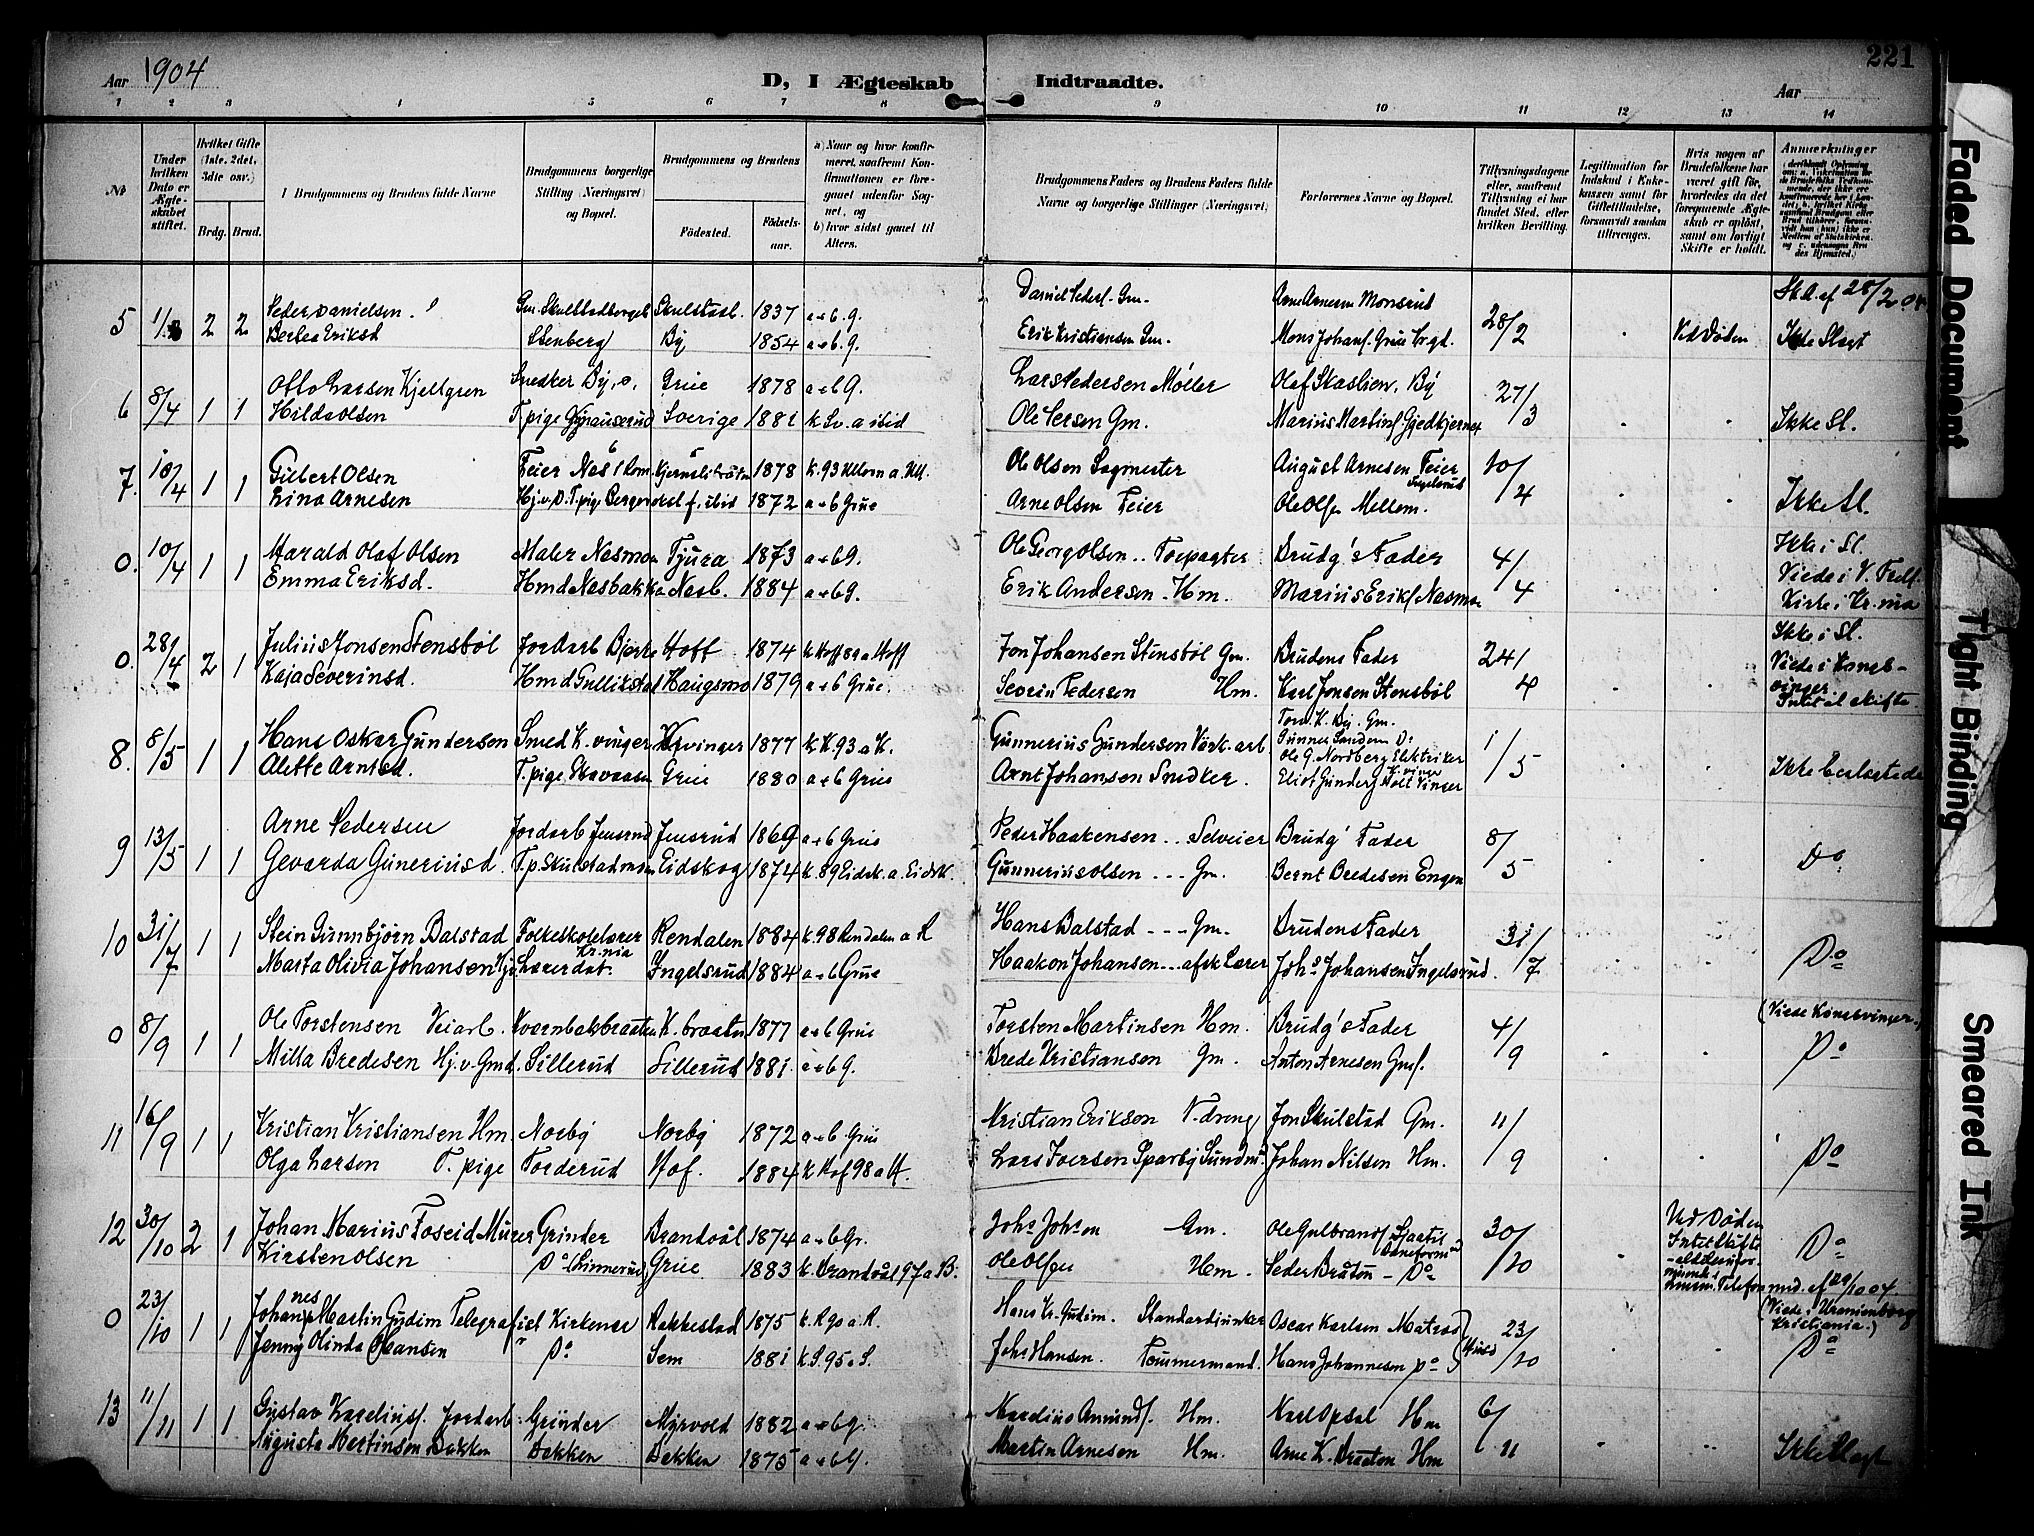 221
Aar 1904
D, I Ægteskab Indtraadte.
Aar
1 2 3 4 5 6 7 8 9 10 11 12 13 14
No
Under hvilken Dato er Ægteskabet stiftet.
Hvilket Gifte (1ste, 2det, 3die osv.)
Brdg. Brud.
I Brudgommens og Brudens fulde Navne
Brudgommens borgerlige Stilling (Næringsvei) og Bopæl.
Brudgommens og Brudens
Fødested.
Fødselsaar.
a) Naar og hvor konfirmeret, saafremt Konfirmationen er foregaaet udenfor Sognet, og
b) hvor sidst gaaet til Alters.
Brudgommens Faders og Brudens Faders fulde Navne og borgerlige Stillinger (Næringsvei)
Forlovernes Navne og Bopæl.
Tillysningsdagene eller, saafremt Tillysning ei har fundet Sted, efter hvilken Bevilling.
Legitimation for Indskud i Enkekassen samt for Giftetilladelse, forsaavidt saadan tiltrænges.
Hvis nogen af Brudefolkene har været gift før, hvorledes da det foregaaende Ægteskab er opløst, samt om lovligt Skifte er holdt.
Anmærkninger
5 1/3 2 2 Peder Danielsen Gm. Skulstadberget Skulstad 1837 a+b.g. Daniel Peders. Gm. Arne Arnesen Monsrud 28/2 Sk.A. af 28/2 04
Berte Eriksd Stenberg By 1854 a+b.g. Erik Kristiansen Gm. Mons Johans. Grue Prgd. Ved Døden Ikke Slægt
6 8/4 1 1 Otto Larsen Kjellgren Snedker By, Grue 1878 a+b G. Lars Pedersen Møller Olaf Stastien, By 27/3
Hilda Olsen T. pige Sverige 1881 k Sv. a ibid Ole Persen Gm. Marius Martins. Gjedkjernet Ikke Sl.
7. 10/4 1 1 Gulbert Olsen Feier 1878 Ole Olsen Sagmester August Arnesen Feier Ingelsrud 10/4
Lina Arnesen 1872 a+b Grue Arne Olsen Feier Ole Ols. Mellem. Ikke Sl.
0. 10/4 1 1 Harald Olaf Olsen Maler Nasmo Tjura 1873 a+b g. Ole Georg Olsen .. Forpagter Brudg's Fader 4/4 Ikke i Sl.
Emma Eriksd. Hmd Næsbakka Næsb. 1884 a+b g. Erik Andersen - Hm. Marius Eriks Nasmo Viede i V. Freds. Kirke i Kr.nia
0. 28/4 2 1 Julius Jonsen Stensbøl Jordarb Bjerke Hoff 1874 k Hoff 89 a Hoff Jon Johansen Stensbøl Gm. Brudens Fader 24/4 Ikke i Sl.
Kaja Severinsd. Hmd Gullikstad Haugsmo 1879 a+b Grue. Severin Pedersen Hm. Karl Jonsen Stensbøl Viede i Kongsvinger. Intet at skifte
8. 8/5 1 1 Hans Oskar Gundersen Smed K. vinger K.vinger 1877 k K. 93 a K. Gunnerius Gundersen Værk. arb Torv. K. By. Gm. Gunner Sandem Do 1/5
Alette Arntsd. T. pige Grue 1880 a+b Grue Arnt Johansen Snedker. Ole G. Nordberg Elektriker K.vinger Ikke beslægtede
9 13/5 1 1 Arne Pedersen Jordarb Jensrud Jensrud 1869 a+b Grue Peder Haakensen .. Selveier Brudg' Fader 8/5
Gevarda Guneriusd. T.p. Skulstadmoen Eidskog 1874 k. 89 Eidsk. a. Eidsk. Gunnerius Olsen --- Gm. Bernt Bredesen Engen Do
10 31/7 1 1 Stein Gunnbjørn Balstad Folkeskolelærer Kr.nia Rendalen 1884 k. 98 Rendalen a R Hans Balstad --- Gm. Brudens Fader 31/7
Marta Olivia Johansen Hj. Lærerdat. Ingelsrud 1884 a+b Grue Haakon Johansen --- afsk Lærer Johs Johansen Ingelsrud. Do
0 8/9 1 1 Ole Torstensen Veiarb. Kværnbakbraaten K. braaten 1877 a+b Grue Torsten Martinsen Hm. Brudg's Fader 4/9 (Viede Kongsvinger.)
Milla Bredesen Hj. v. Gmd. Lillerud Lillerud 1881 a+b g. Brede Kristiansen Gm. Anton Arnesen Gms. Do
11 16/9 1 1 Kristian Kristiansen Hm. Norby Norby 1872 a+b. Grue Kristian Erikson V. dreng Jon Skulstad Gm. 11/9
Olga Larsen T. pige Torderud Hof. 1884 k Hof 98 a H. Lars Iversen Sparby Sundm. Johan Nilsen Hm. Do
12 30/10 2 1 Johan Marius Foseid Murer Grinder Brandvål 1874 a+b Gr. Johs Johsen Gm. Ole Gulbrands Sjaatil 30/10 Ved Døden Intet Skifte
Kirsten Olsen Do (Linnerud) Grue 1883 k. Brandvål 97 a B. Ole Olsen Hm. Peder Bråten - Do Do
0 23/10 1 1 Johannes Martin Gudim Telegrafist Kirkenær Rakkestad 1875 k. R 90 a. R. Hans Kr. Gudim. Standardjunker Oscar Karlsen Matros 23/10 (Viede i Uranienborg Kristiania.)
Jenny Olinda Hansen " Do Sem 1881 k S. 95 a S. Johs Hansen. Tømmermand. Hans Johannesen Do Do
13 11/11 1 1 Gustav Kareliuss. Jordarb. Grinder Myrvold 1882 a+b g. Karelius Amunds. Hm. Karl Opsal Hm 6/11
Augusta Martinsen Bakken Bakken Bakken 1875 a+b G. Martin Arnesen Hm. Arne K. Braaten Hm Ikke Slægt
Faded Document
Tight Binding
Smeared Ink